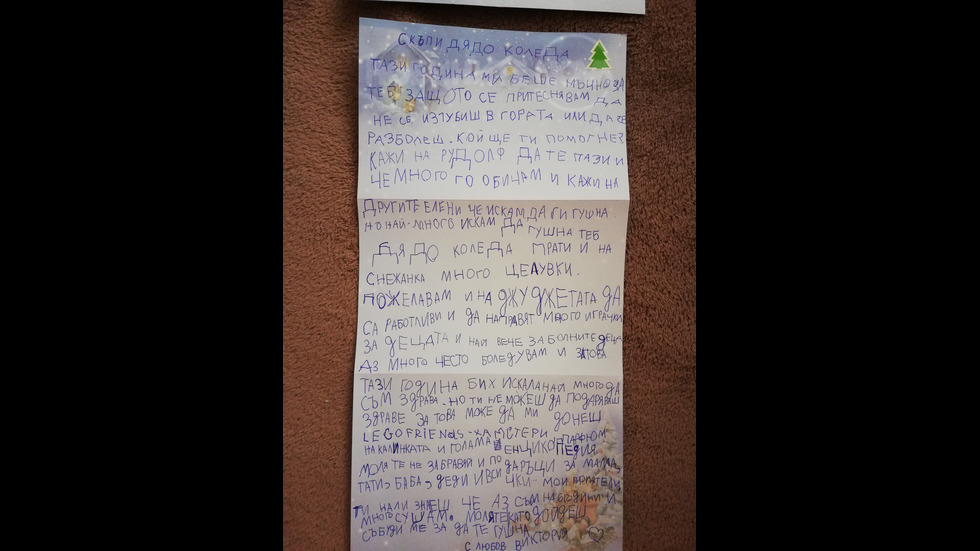 СКЪПИ ДЯДО КОЛЕДА
ТАЗИ ГОДИНА МИ БЕШЕ МЪЧНО ЗА
ТЕБ ЗАЩОТО СЕ ПРИТЕСНЯВАМ ДА
НЕ СЕ ИЗГУБИШ В ГОРАТА ИЛИ ДА СЕ
РАЗБОЛЕШ. КОЙ ЩЕ ТИ ПОМОГНЕ?
КАЖИ НА РУДОЛФ ДА ТЕ ПАЗИ И
ЧЕ МНОГО ГО ОБИЧАМ И КАЖИ НА
ДРУГИТЕ ЕЛЕНИ ЧЕ ИСКАМ ДА ГИ ГУШНА
НО НАЙ-МНОГО ИСКАМ ДА ГУШНА ТЕБ
ДЯДО КОЛЕДА ПРАТИ И НА
СНЕЖАНКА МНОГО ЦЕЛУВКИ.
ПОЖЕЛАВАМ И НА ДЖУДЖЕТАТА ДА
СА РАБОТЛИВИ И ДА НАПРАВЯТ МНОГО ИГРАЧКИ
ЗА ДЕЦАТА И НАЙ ВЕЧЕ ЗА БОЛНИТЕ ДЕЦА
АЗ МНОГО ЧЕСТО БОЛЕДУВАМ И ЗАТОВА
ТАЗИ ГОДИНА БИХ ИСКАЛА НАЙ МНОГО ДА
СЪМ ЗДРАВА. НО ТИ НЕ МОЖЕШ ДА ПОДАРЯВАШ
ЗДРАВЕ ЗА ТОВА МОЖЕ ДА МИ ДОНЕШ
LEGO FRIENDS - ХАМСТЕРИ, ПАРФЮМ
НА КАЛИНКАТА И ГОЛАМА ЕНЦИКОПЕДИЯ
МОЛЯ ТЕ НЕ ЗАБРАВЯЙ И ПОДАРЪЦИ ЗА МАМА,
ТАТИ, БАБА, ДЕДИ И ВСИЧКИ МОИ ПРИЯТЕЛИ
ТИ НАЛИ ЗНАЕШ ЧЕ АЗ СЪМ НА ГОДИНИ И
МНОГО СУШАМ. МОЛЯ ТЕ КАТО ДОЙДЕШ
СЪБУДИ МЕ ЗА ДА ТЕ ГУШНА
С ЛЮБОВ ВИКТОРИЯ